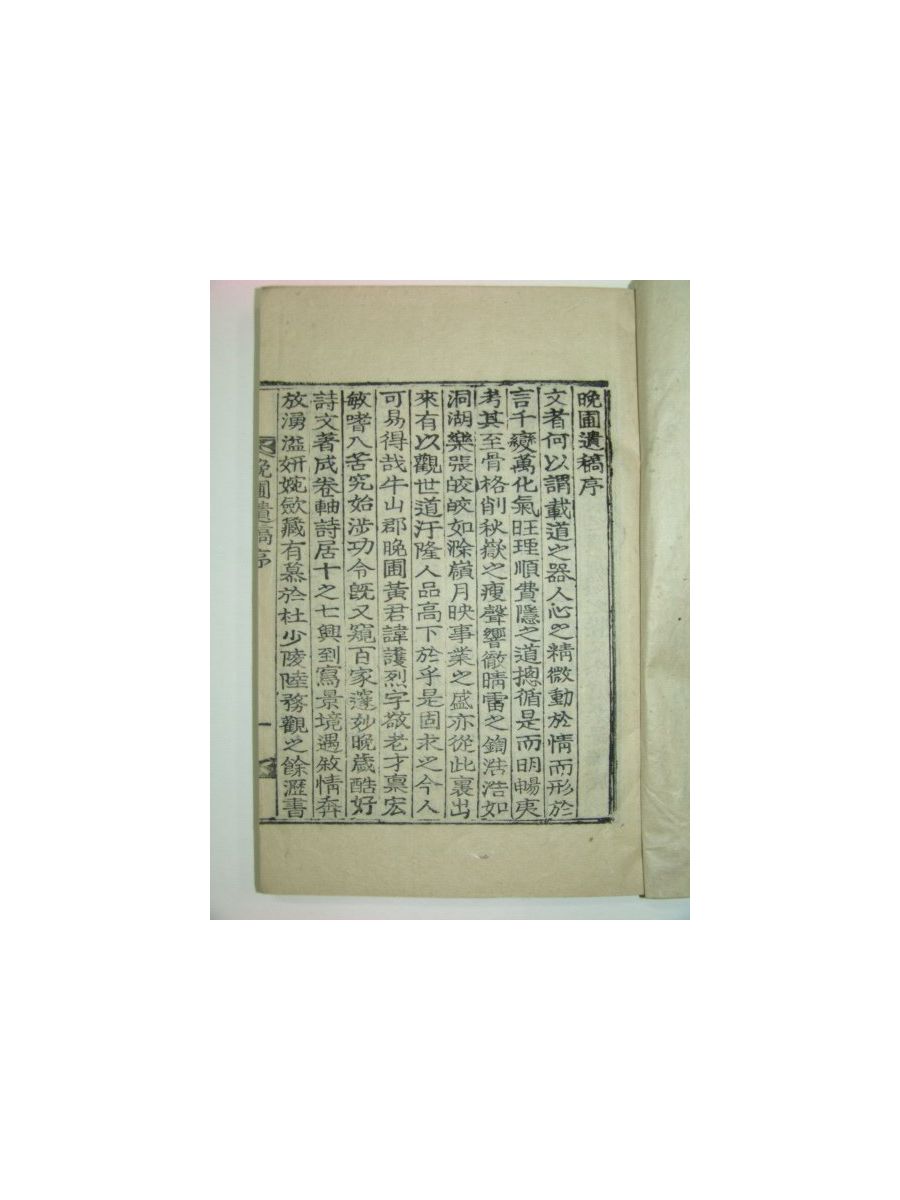 晩圃遺稿序
文者何以謂載道之器人心之精微動於情而形於
言千變萬化氣旺理順費隱之道摠循是而明暢夷
考其至骨格削秋嶽之瘦聲響徹晴雷之鍧浩浩如
洞湖樂張皎皎如滁嶺月映事業之盛亦從此裏出
來有以觀世道汙隆人品高下於乎是固求之今人
可易得哉牛山郡晩圃黃君諱護烈字敬老才禀宏
敏嗜入苦究始涉功令旣又窺百家邃妙晩歲酷好
詩文著成卷軸詩居十之七興到寫景境遇敘情奔
放湧溢姸婉歛藏有慕於杜少陵陸務觀之餘瀝書
晩圃遺稿序 一